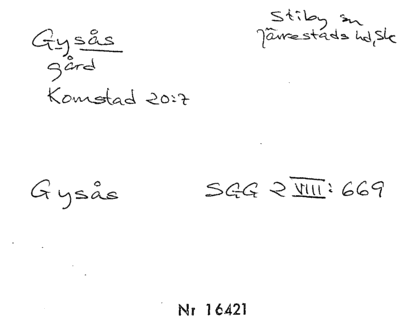 Gysås
gård
Komstad 20:7
Stiby sn
Järrestads hd, Sk
Gysås
SGG 2 VIII: 669
Nr 16421